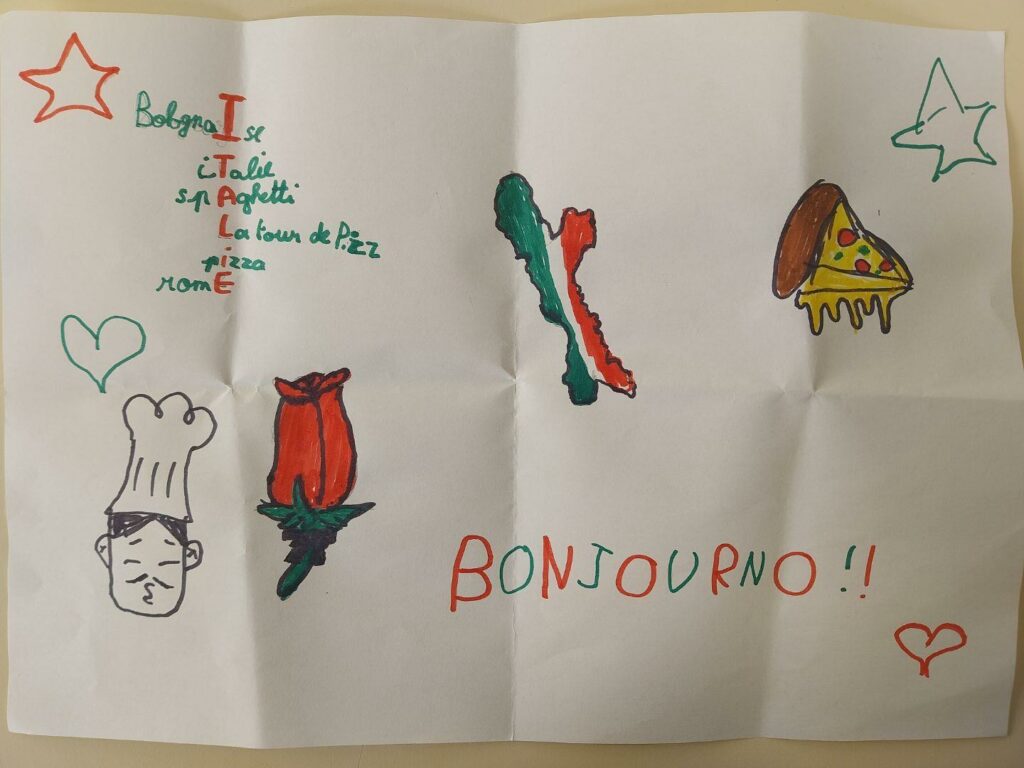 BolognaIse
iTalie
spAghetti
La tour de Pizz
pizza
romE
BONJOURNO !!